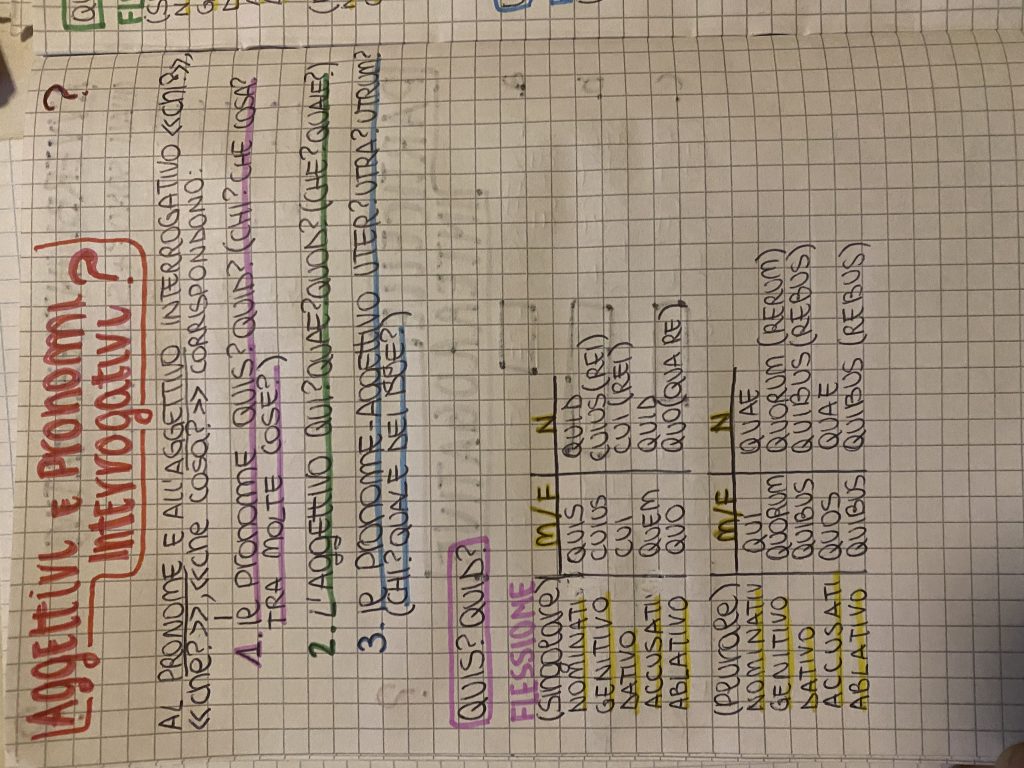 Aggettivi e pronomi
interrogativi?
?
AL PRONOME E ALL'AGGETTIVO INTERROGATIVO <<chi?>>,
<<che?>>, <<che cosa?>> CORRISPONDONO:
1. il PRONOME QUIS? QUID? (CHI? CHE COSA?
TRA MOLTE COSE?)
2. L'AGGETTIVO QUI? QUAE? QUOD? (CHE? QUALE?)
3. il PRONOME-AGGETTIVO UTER? UTRA? UTRUM?
(CHI? QUALE DEI DUE?)
QUIS? QUID?
FLESSIONE
(singolare) M/F N
NOMINATIV QUIS QUID
GENITIVO CUIUS CUIUS (REI)
DATIVO CUI CUI (REI)
ACCUSATIV QUEM QUID
ABLATIVO QUO QUO (QUA RE)
(plurale) M/F N
NOMINATIV QUI QUAE
GENITIVO QUORUM QUORUM (RERUM)
DATIVO QUIBUS QUIBUS (REBUS)
ACCUSATI QUOS QUAE
ABLATIVO QUIBUS QUIBUS (REBUS)